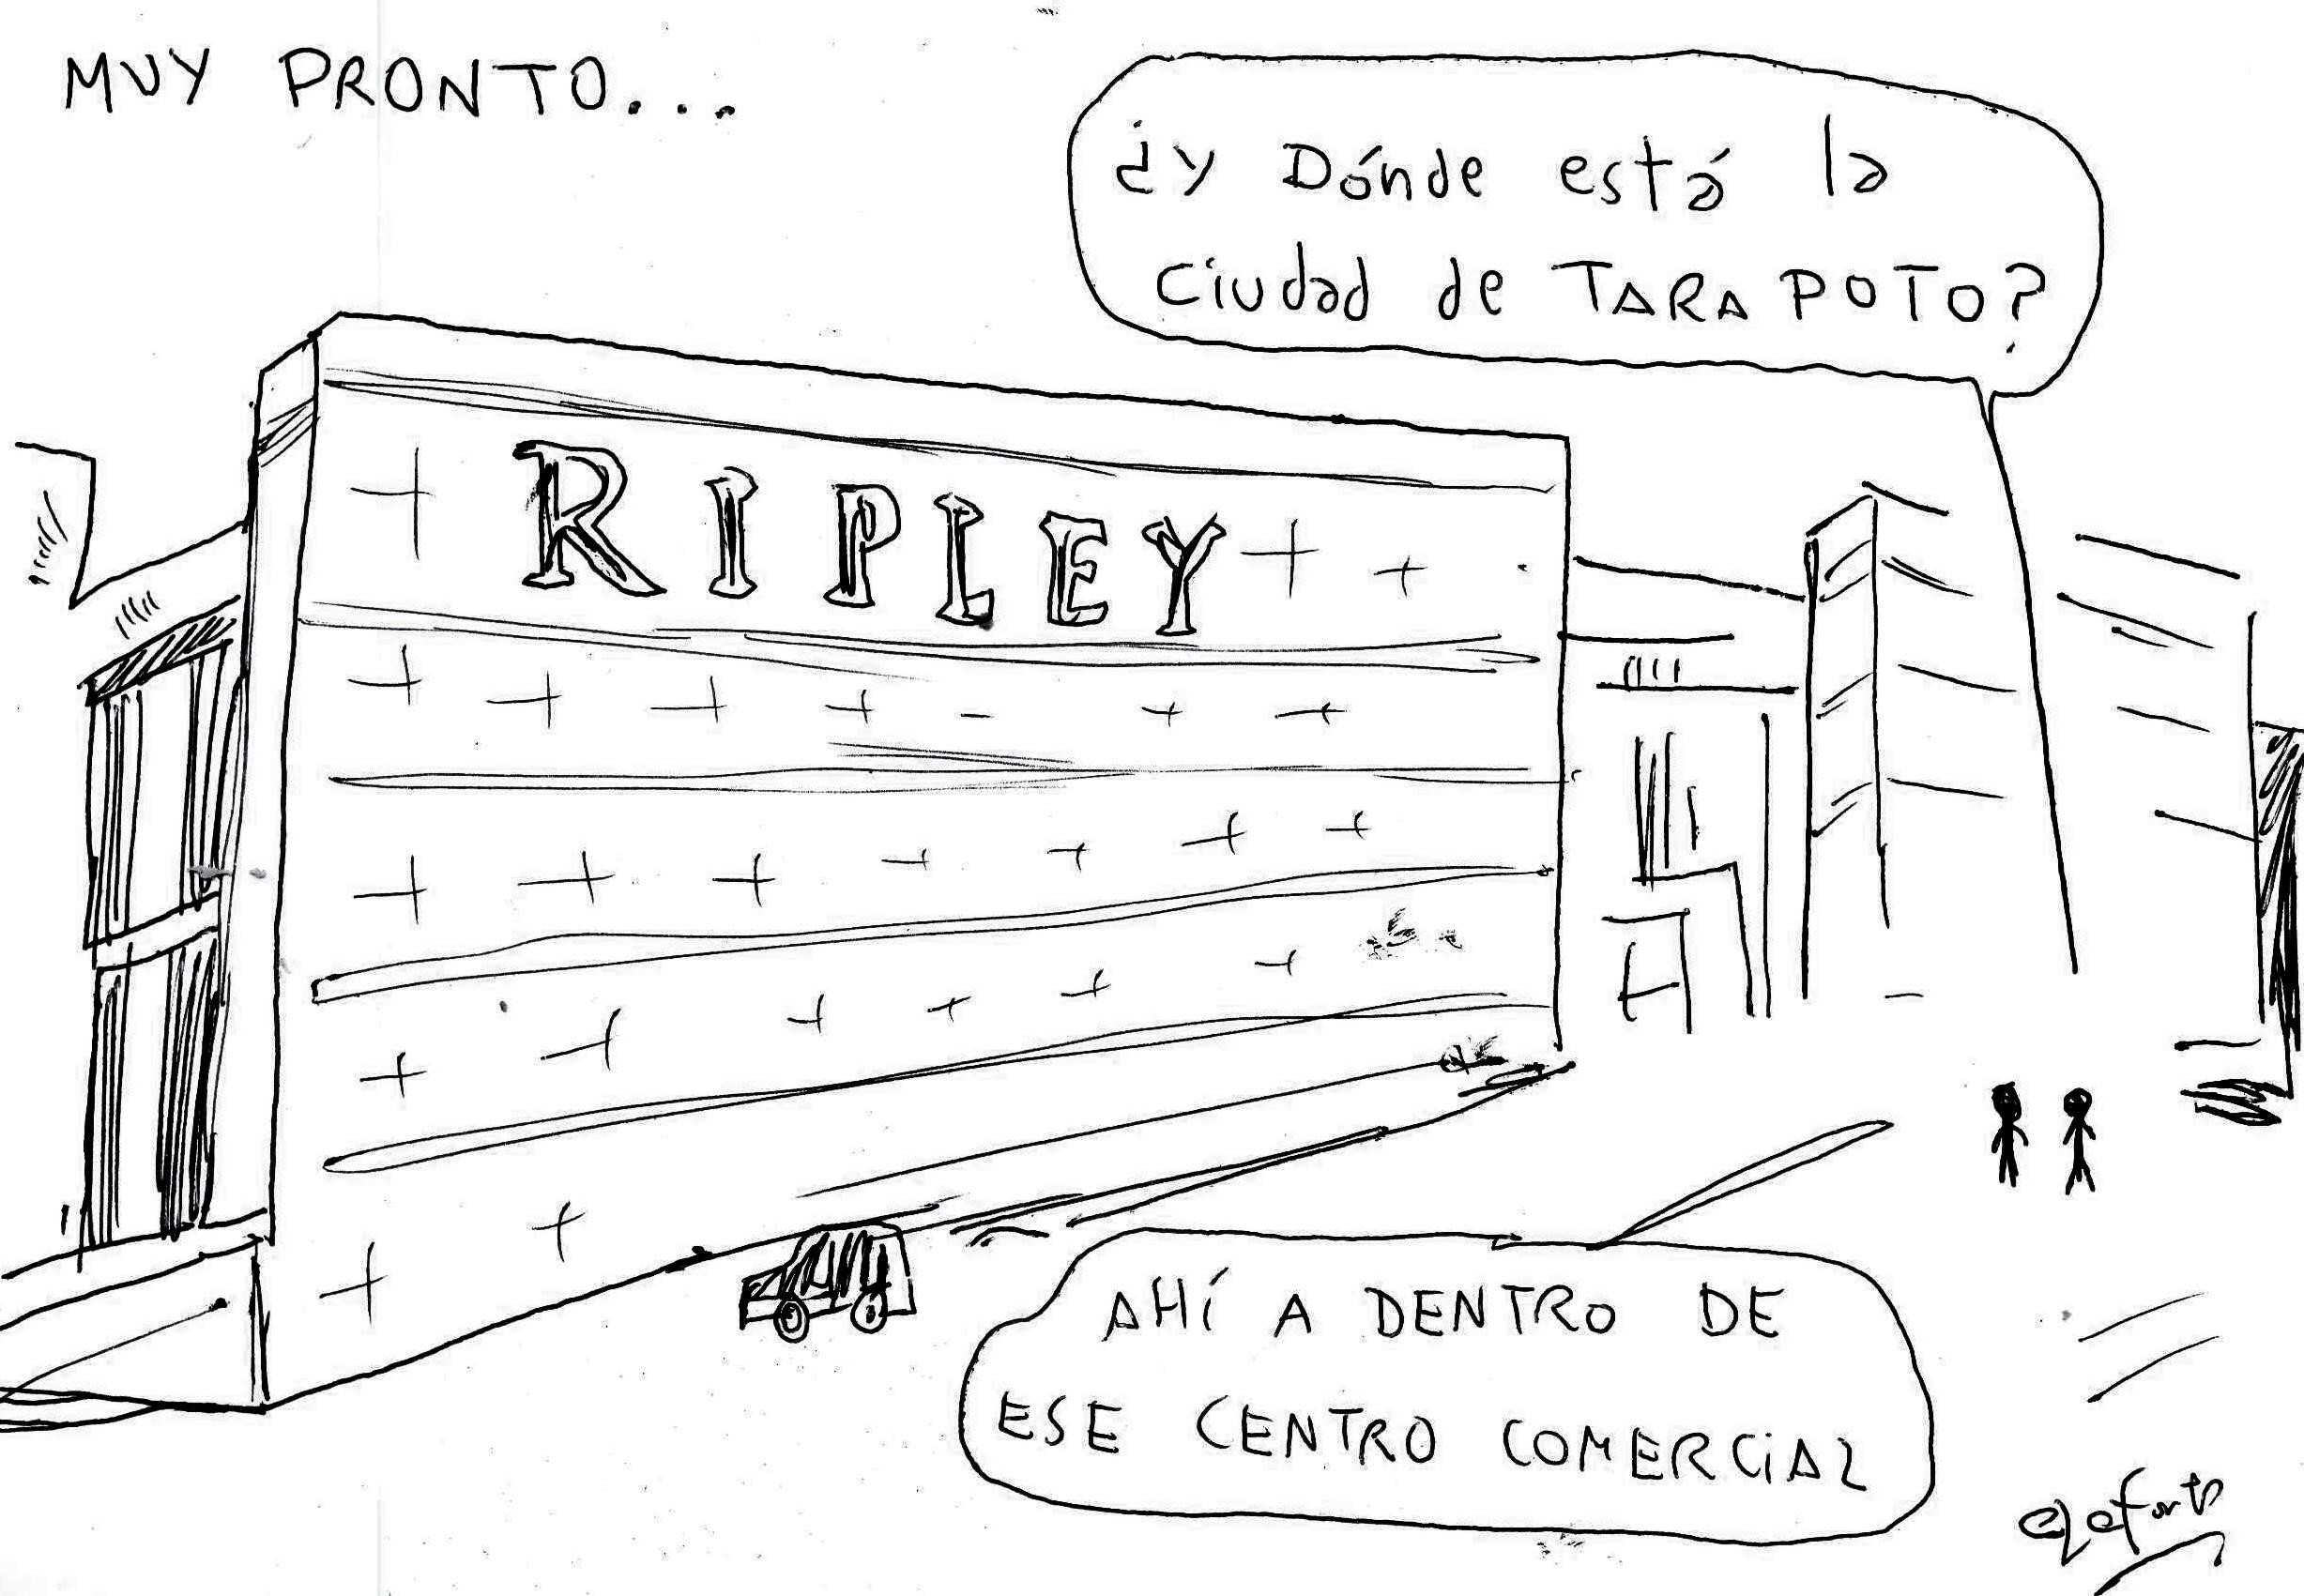 MUY PRONTO...
¿Y Dónde está la
ciudad de TARAPOTO?
RIPLEY
AHÍ A DENTRO DE
ESE CENTRO COMERCIAL